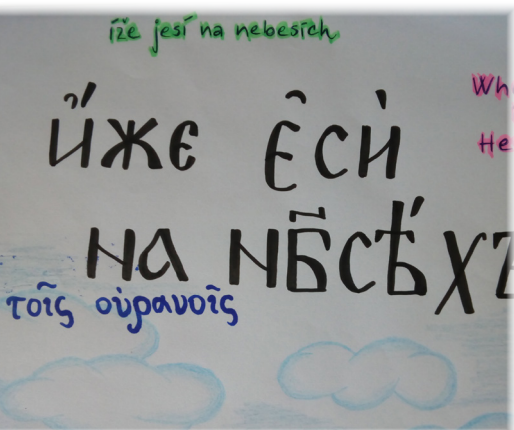 íže jesí na nebesích
Wh
и҆́же є҆сѝ
He
на нб҃сѣ́хъ
τοῖς οὐρανοῖς